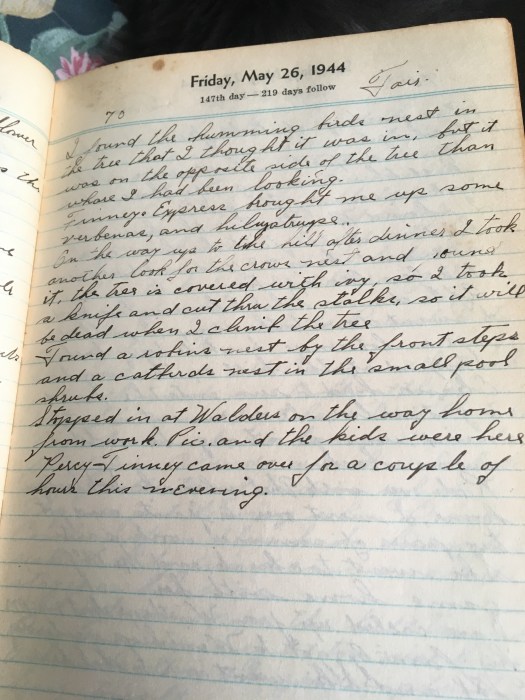 Friday, May 26, 1944
147th day — 219 days follow
70 Fair.
I found the humming birds nest in
the tree that I thought it was in, but it
was on the opposite side of the tree than
where I had been looking.
Finneys Express brought me up some
verbenas, and
On the way up to the hill after dinner I took
another look for the crows nest and found
it, the tree is covered with ivy, so I took
a knife and cut thru the stalks, so it will
be dead when I climb the tree
Found a robins nest by the front steps
and a catbirds nest in the small pool
shrubs.
Stopped in at Walders on the way home
from work. Pic. and the kids were here
Percy-Finney came over for a couple of
hours this
flower